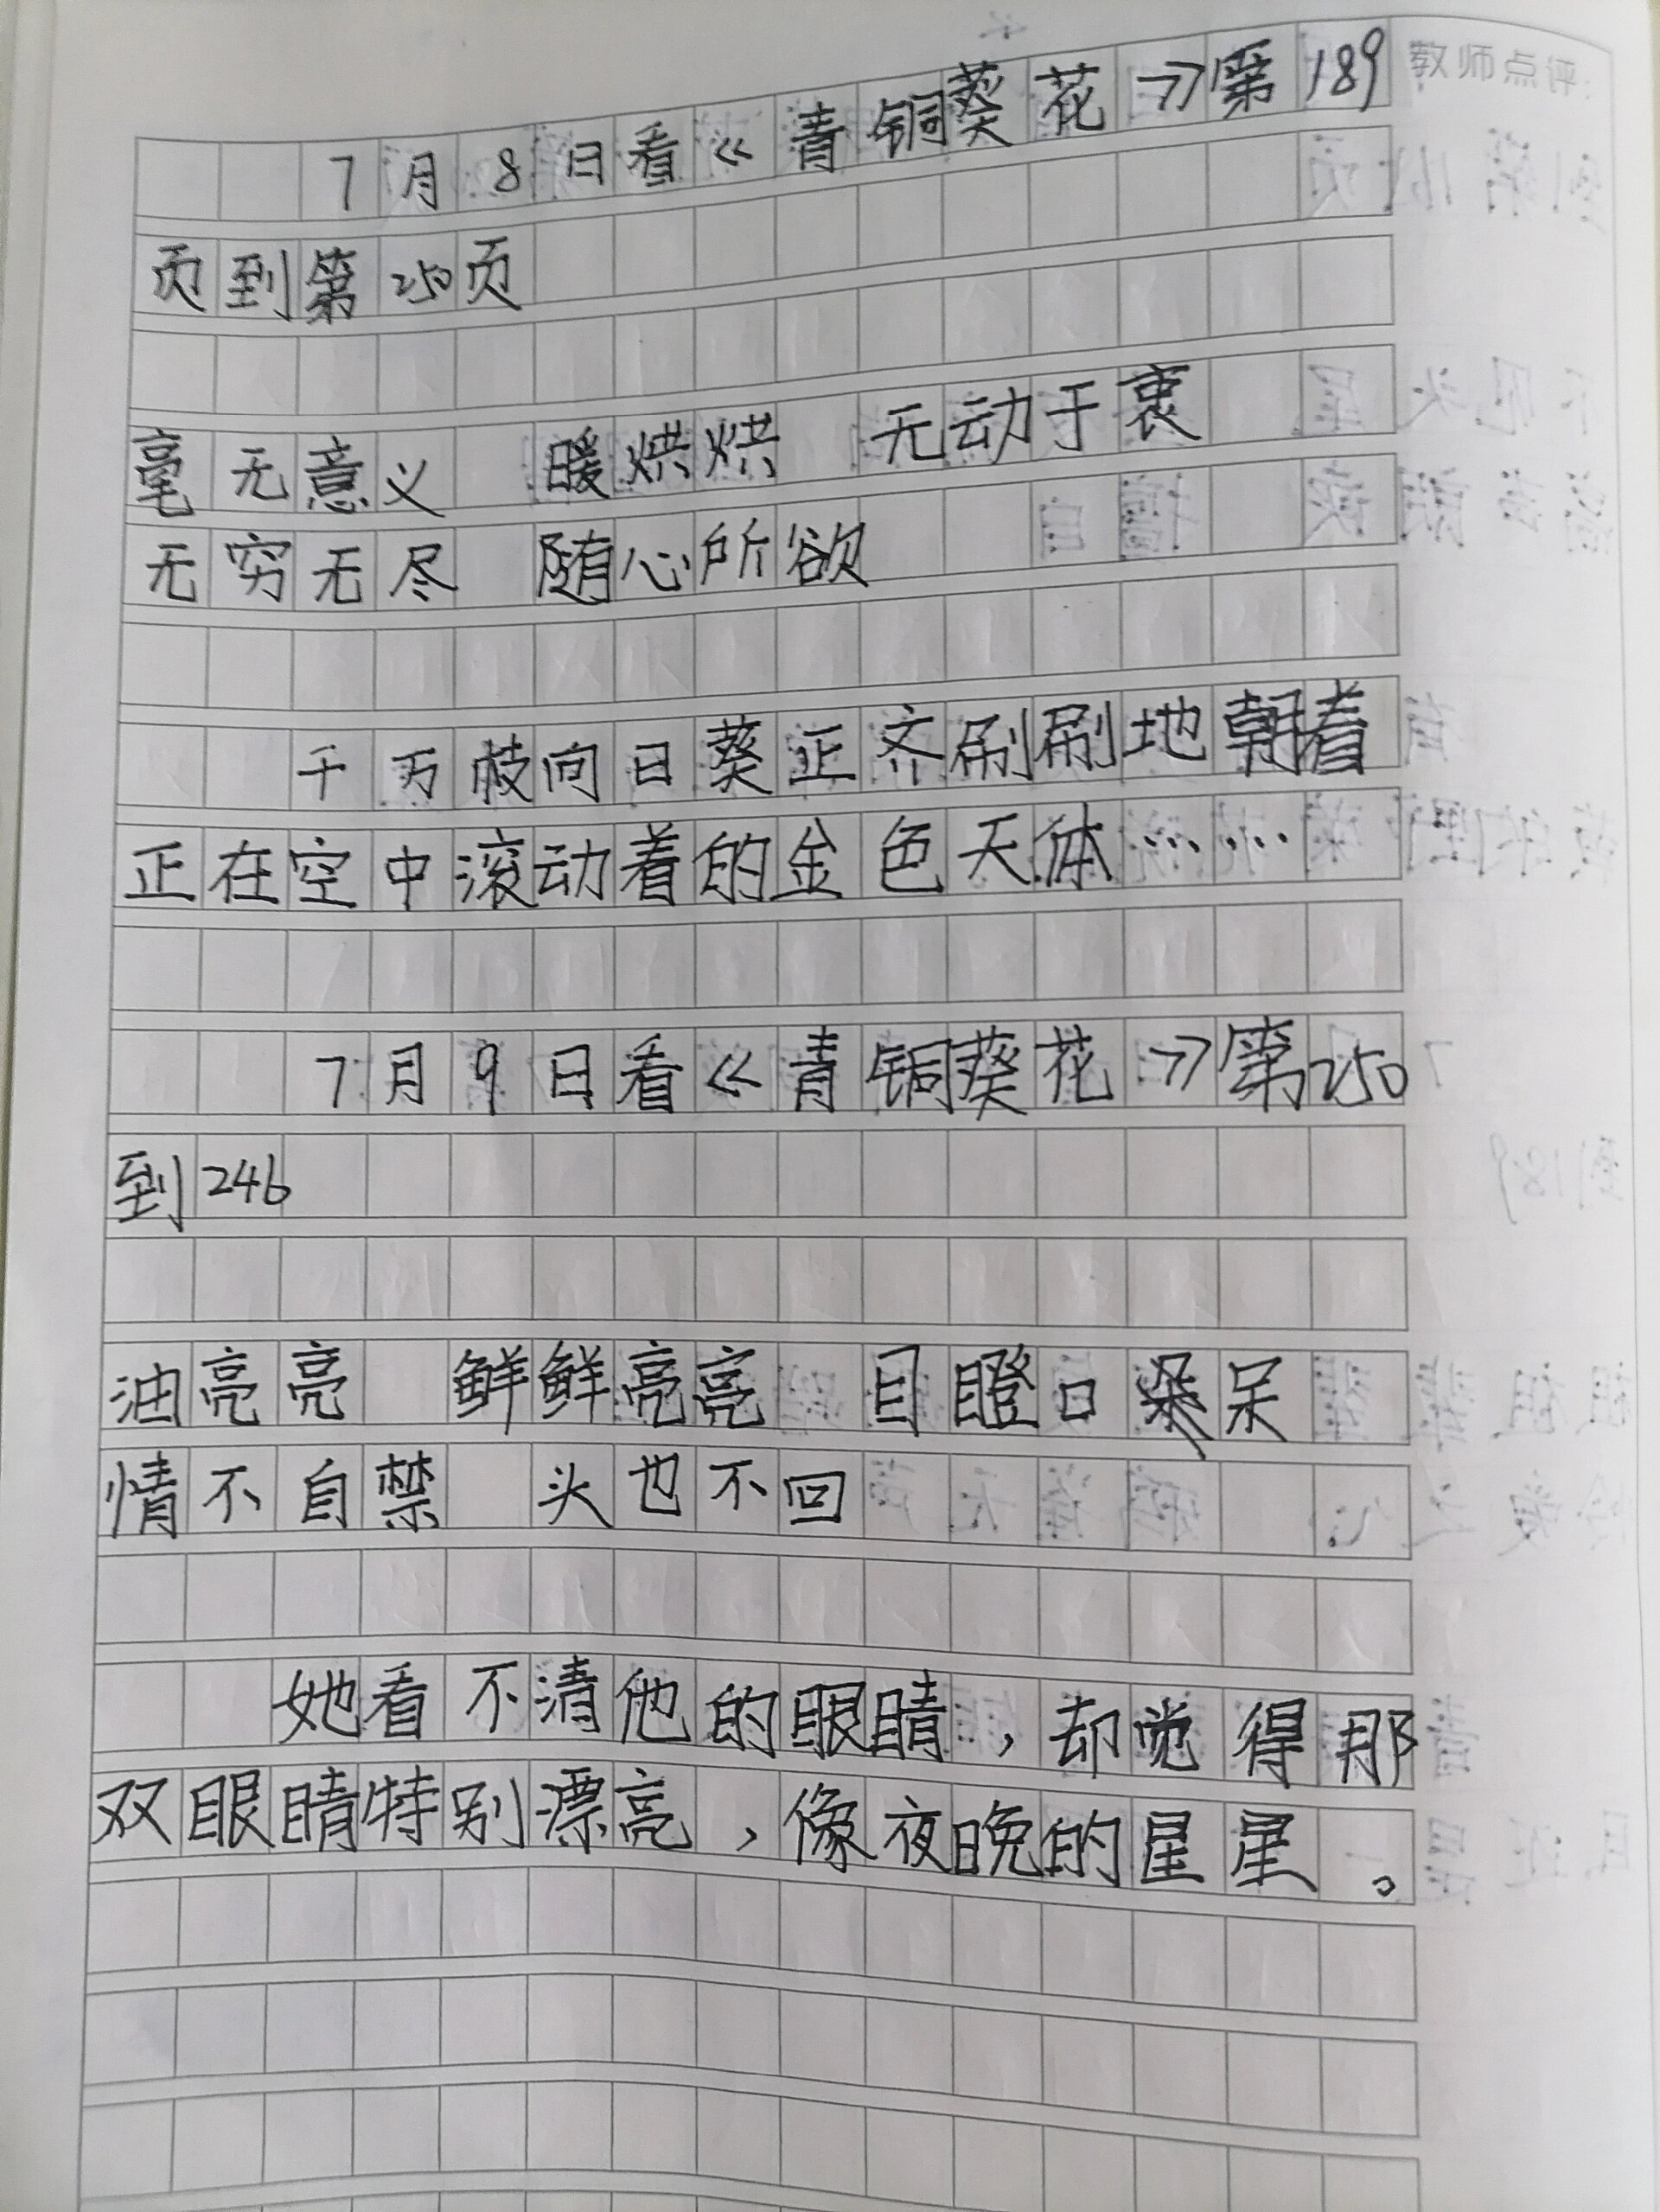 教师点评
7月8日看《青铜葵花》第189
页到第250页
毫无意义 暖烘烘 无动于衷
无穷无尽 随心所欲
千万枝向日葵正齐刷刷地朝着
正在空中滚动着的金色天体……
7月9日看《青铜葵花》第250
到246
油亮亮 鲜鲜亮亮 目瞪口呆
情不自禁 头也不回
她看不清他的眼睛，却觉得那
双眼睛特别漂亮，像夜晚的星星。